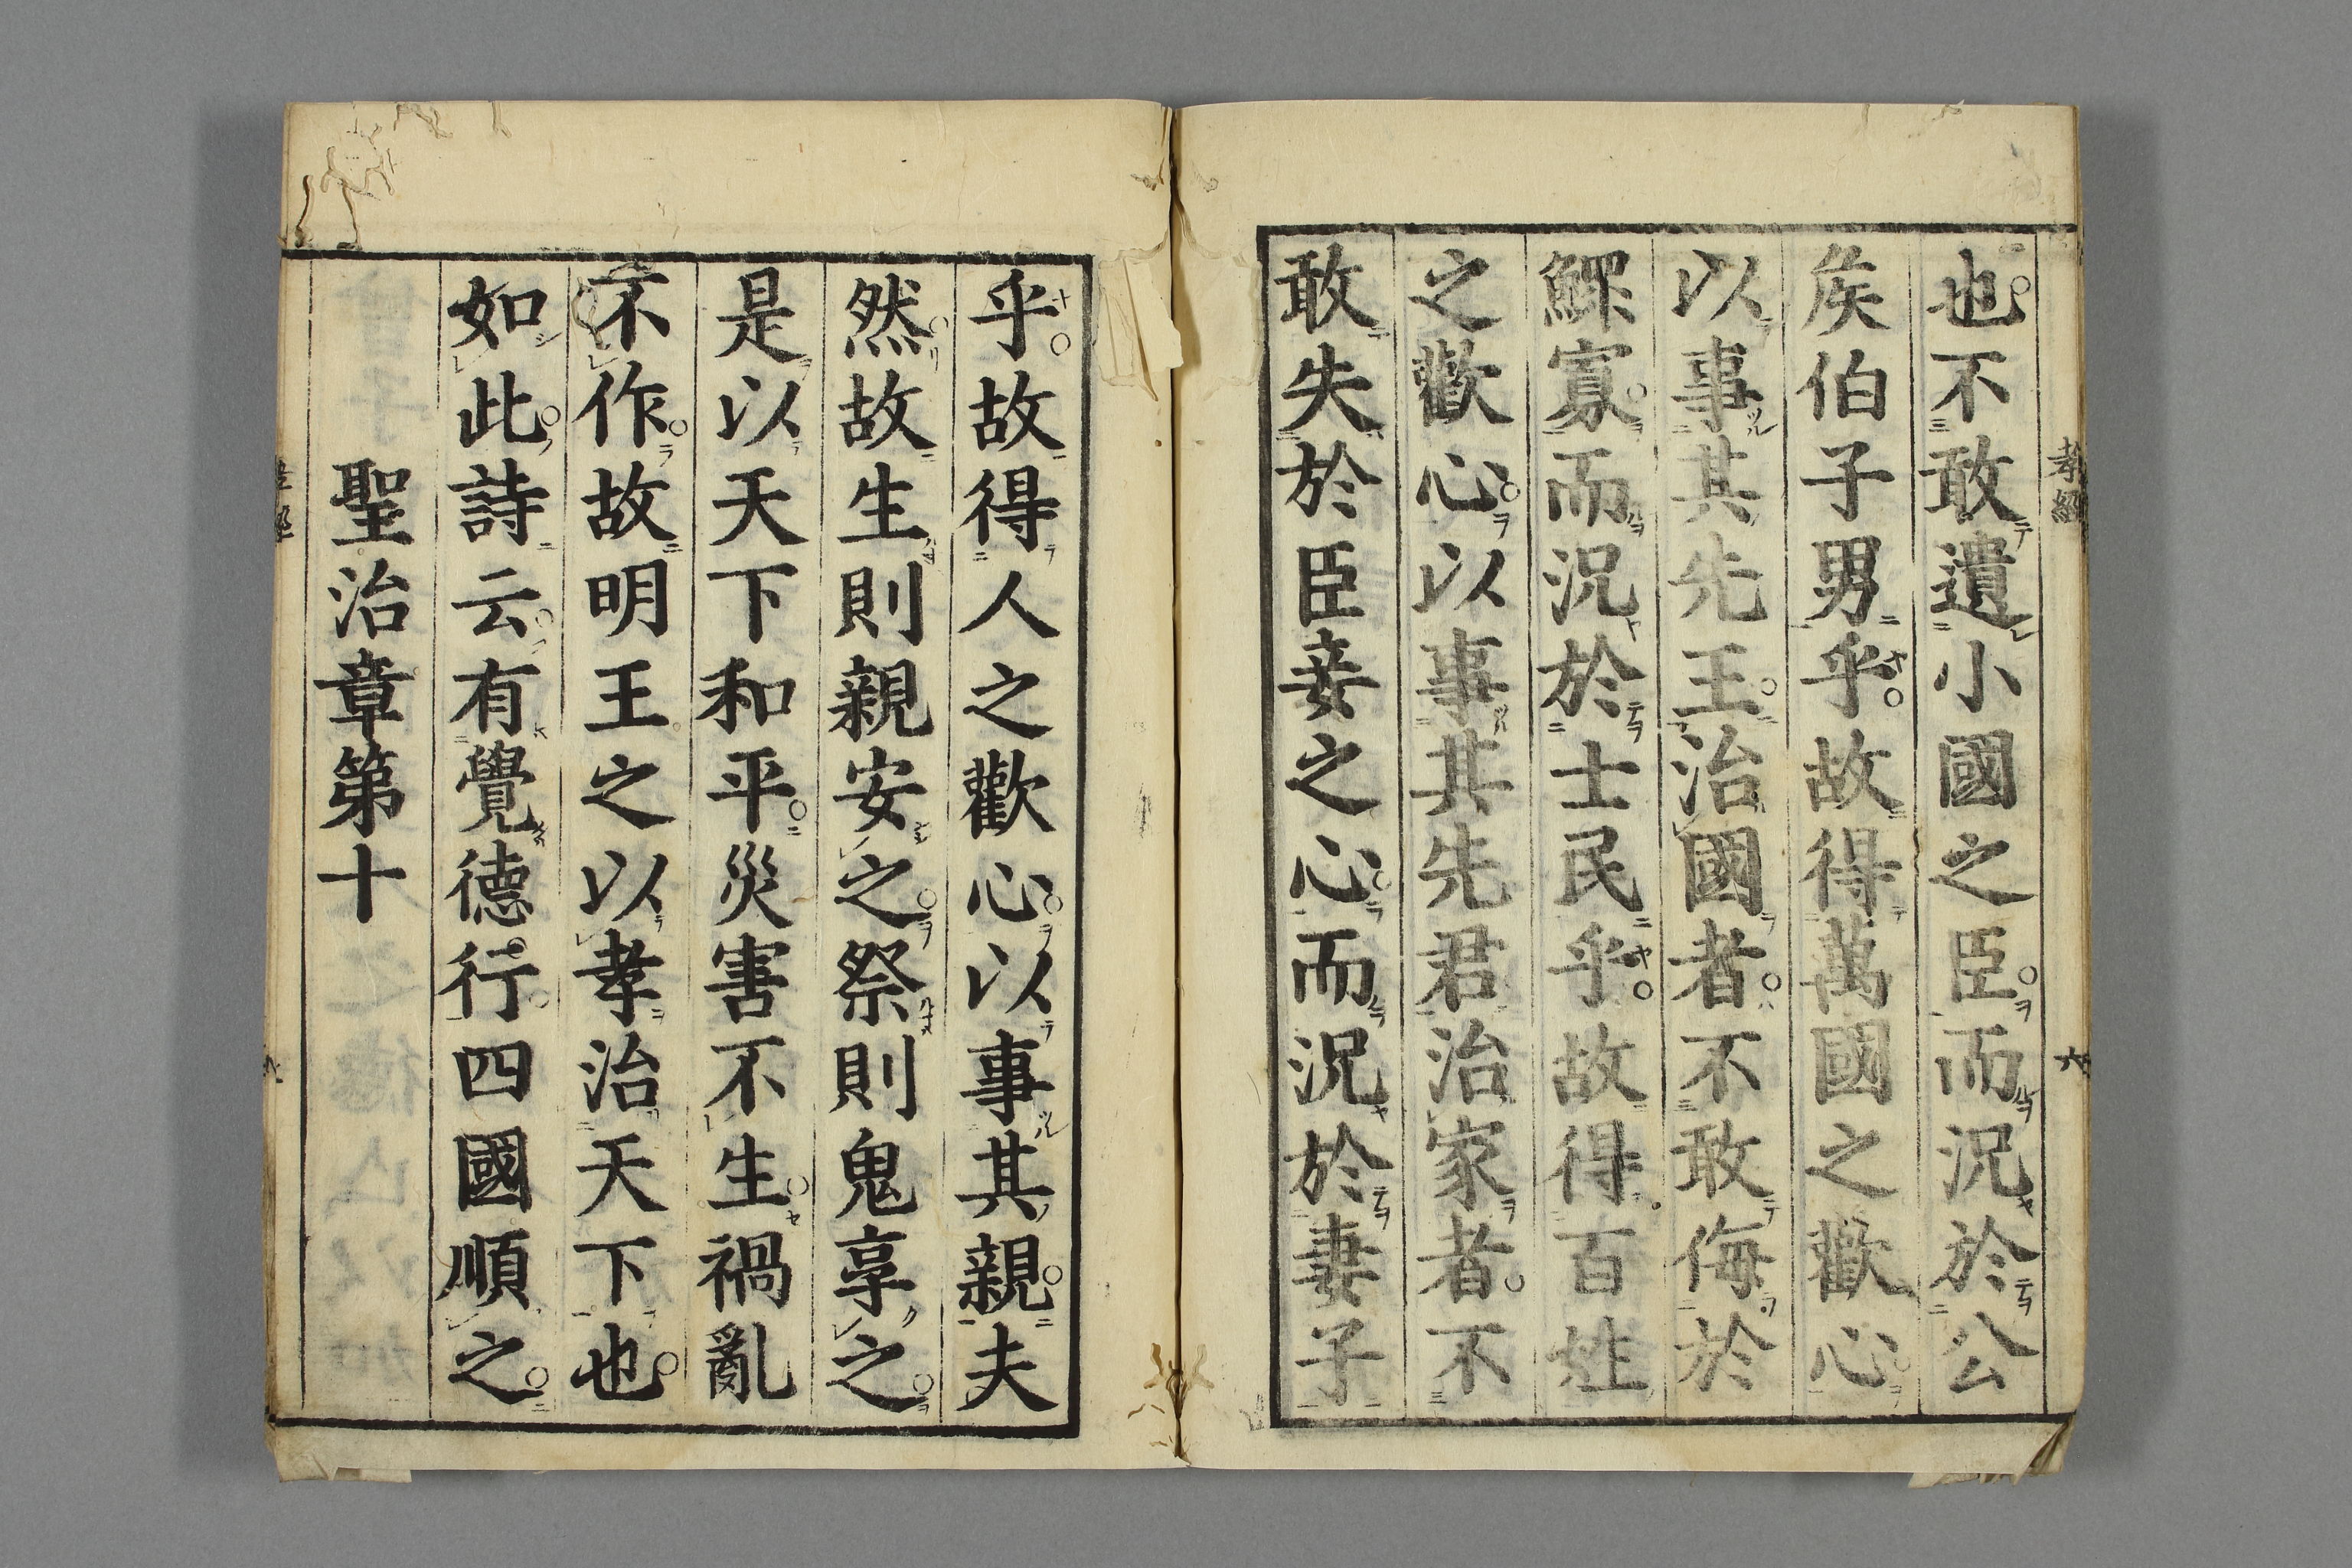 孝經
六
也不敢遺小國之臣而況於公
矦伯子男乎故得萬國之歡心
以事其先王治國者不敢侮於
鰥寡而況於士民乎故得百姓
之歡心以事其先君治家者不
敢失於臣妾之心而況於妻子
乎故得人之歡心以事其親夫
然故生則親安之祭則鬼享之
是以天下和平災害不生禍亂
不作故明王之以孝治天下也
如此詩云有覺德行四國順之
聖治章第十